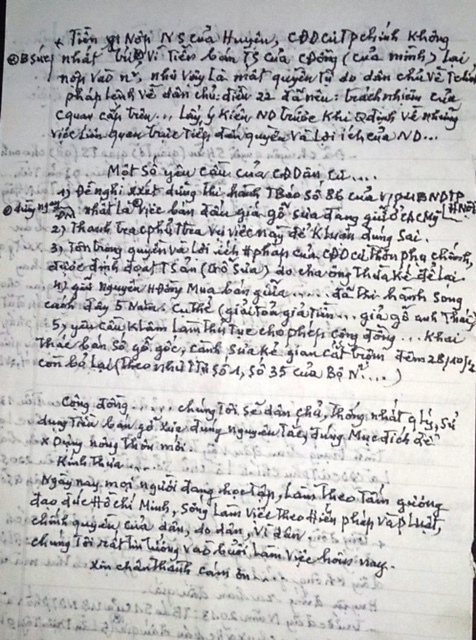 * Tiền gì Nộp NS của Huyện, CĐDCư TPchính không
nhất trí Vì Tiền bán TS của CĐồng (của mình) Lại
nộp vào nº, như vậy là mất quyền tự do dân chủ về Tchính
pháp lệnh về dân chủ: điều 22 đã nêu: trách nhiệm của
cquan cấp trên... Lấy ý kiến ND trước khi Qđịnh về những
việc Liên quan trực Tiếp, đến quyền và Lợi ích của ND...
Một số yêu cầu của CĐDân cư....
1) Đề nghị xxét dừng thi hành TBáo số 86 của VPUBNDTP
nhất là việc bán đấu giá gỗ sưa đang giữ ở CACMỹ
2) Thanh tra cphủ Ttra vụ việc này để KLuận đúng sai.
3) Tôn trọng quyền và lợi ích Hpháp của CĐDCư thôn Phụ chính,
được định đoạt TSản (Gỗ Sưa) do cha ông Thừa kế để lại.
4) giữ Nguyên HĐồng Mua bán giữa ..... đã thi hành song
cách đây 5 Năm. Cụ thể (giải tỏa giá tiền... giá gỗ anh Thái)
5) yêu cầu KLâm Làm thủ tục cho phép cộng đồng ... khai
thác bán số gỗ gốc, cành sưa kẻ gian cắt trộm đêm 28/10/2
còn bỏ lại (theo như TTư số 1, số 35 của Bộ Nº....)
Cộng đồng ..... chúng tôi sẽ dân chủ, thống nhất qlý, sử
dụng tiền bán gỗ xưa đúng nguyên tắc, đúng Mục đích để
x dựng nông thôn mới.
Kính thưa ....
Ngày nay, mọi người đang học tập, Làm theo Tấm gương
đạo đức Hồ chí Minh, sống Làm việc theo Hiến pháp và PLuật,
chính quyền của dân, do dân, vì dân.
chúng tôi rất tin tưởng vào buổi Làm việc hôm nay.
xin chân thành cám ơn ....